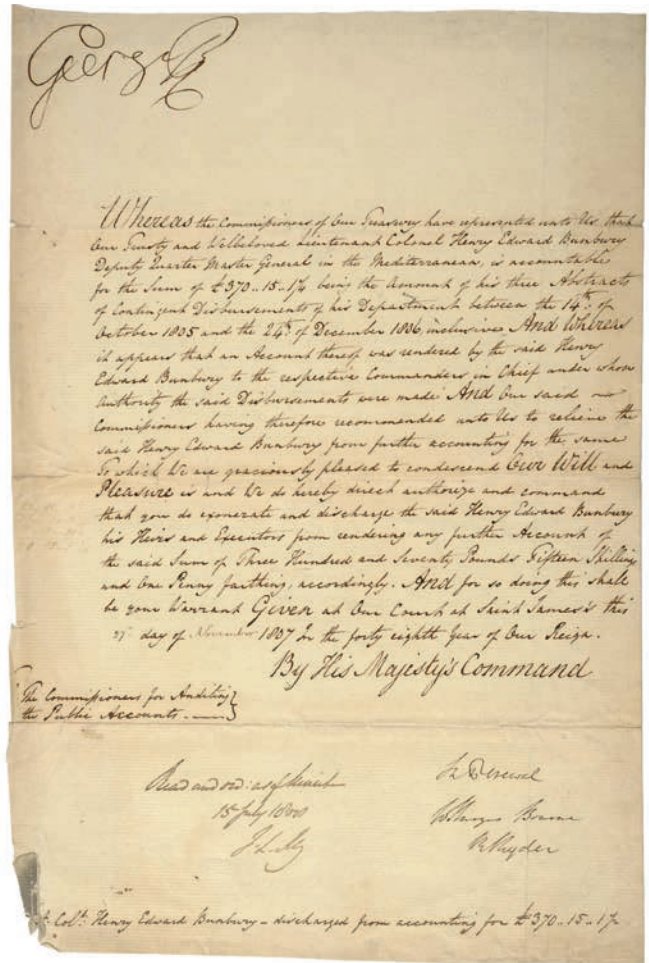 George R
Whereas the Commissioners of Our Treasury have represented unto Us that
Our Trusty and Welbeloved Lieutenant Colonel Henry Edward Bunbury
Deputy Quarter Master General in the Mediterranean, is accountable
for the Sum of £370-15-1¼ being the Amount of his three Abstracts
of Contingent Disbursements of his Department between the 14th of
October 1805 and the 24th of December 1806, inclusive And Whereas
it appears that an Account thereof was rendered by the said Henry
Edward Bunbury to the respective Commanders in Chief under whose
authority the said Disbursements were made And Our said
Commissioners having therefore recommended unto Us to relieve the
said Henry Edward Bunbury from further accounting for the same
To which We are graciously pleased to condescend Our Will and
Pleasure is and We do hereby direct authorize and command
that you do exonerate and discharge the said Henry Edward Bunbury
his Heirs and Executors from rendering any further Account of
the said Sum of Three Hundred and Seventy Pounds Fifteen Shillings
and One Penny farthing, accordingly. And for so doing this shall
be your Warrant Given at Our Court at Saint James's this
27th day of November 1807 In the forty eighth Year of Our Reign.
By His Majesty's Command
The Commissioners for Auditing
the Public Accounts.
Sp Perceval
W Sturges Bourne
R Ryder
Read and
15 July 1808
Colt. Henry Edward Bunbury - discharged from accounting for £370-15-1¼